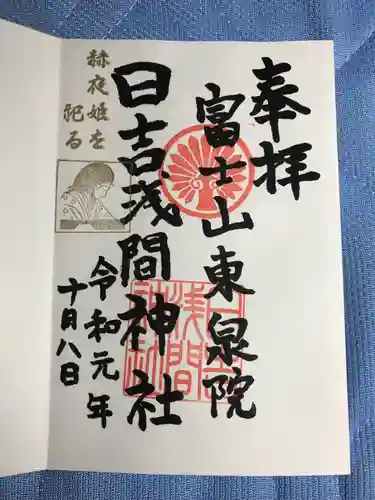 奉拝
富士山東泉院
日吉浅間神社
赫夜姫を
祀る
令和元年
十月八日